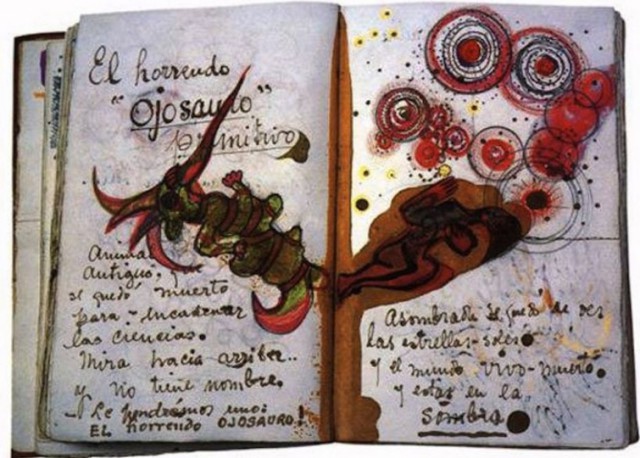 El horrendo
"Ojosauro"
primitivo
Animal
antiguo, que
se quedó muerto
para encadenar
las ciencias.
Mira hacia arriba..
y no tiene nombre.
– Le pondremos uno:
EL horrendo OJOSAURO!
Asombrada se quedó de ver
las estrellas-soles
y el mundo vivo-muerto
y estar en la
sombra